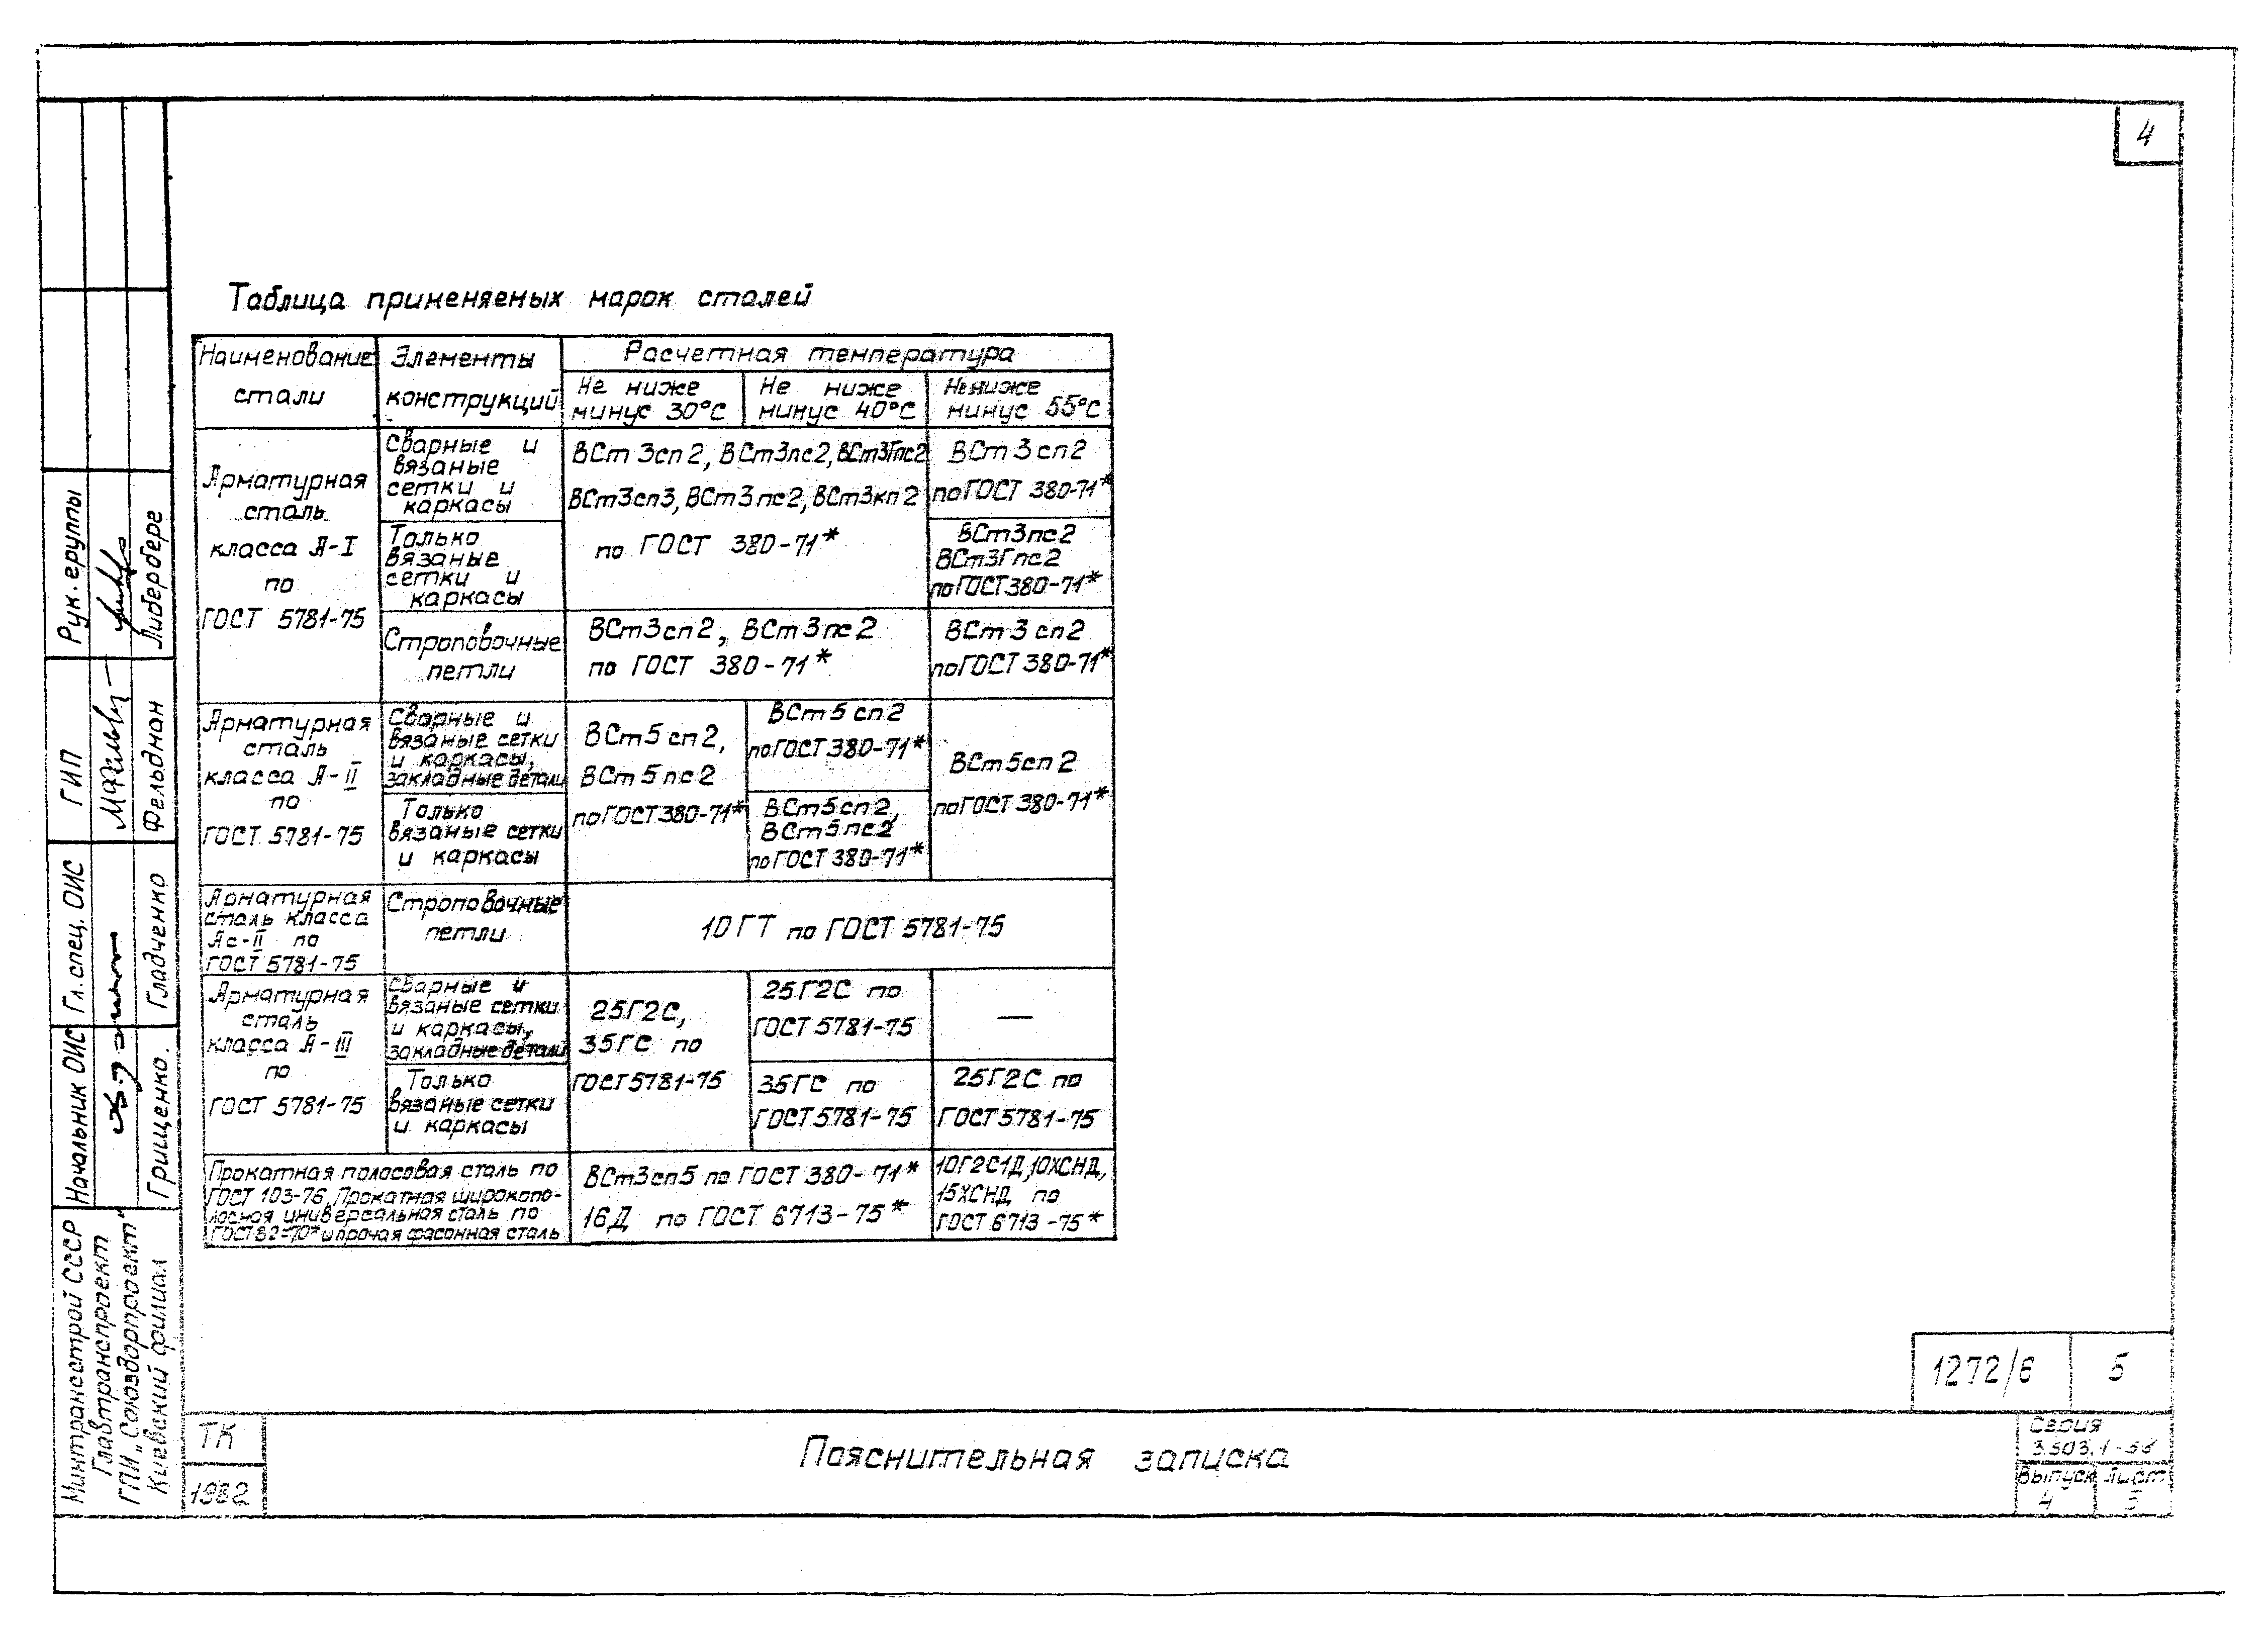 4
Таблица применяемых марок сталей
Наименование стали
Элементы конструкций
Расчетная температура
Не ниже минус 30°С
Не ниже минус 40°С
Не ниже минус 55°С
Арматурная
сталь
класса А-I
по
ГОСТ 5781-75
Сварные и
вязаные
сетки и
каркасы
ВСт 3сп2, ВСт3пс2, ВСт3Гпс2
ВСт3сп3, ВСт3пс2, ВСт3кп2
по ГОСТ 380-71*
ВСт 3 сп2
по ГОСТ 380-71*
Только
вязаные
сетки и
каркасы
ВСт3пс2
ВСт3Гпс2
по ГОСТ 380-71*
Строповочные
петли
ВСт3сп2, ВСт3пс2
по ГОСТ 380-71*
ВСт 3 сп2
по ГОСТ 380-71*
Арматурная
сталь
класса А-II
по
ГОСТ 5781-75
Сварные и
вязаные сетки
и каркасы,
закладные детали
ВСт5сп2,
ВСт5пс2
по ГОСТ 380-71*
ВСт5сп2
по ГОСТ 380-71*
ВСт5сп2
по ГОСТ 380-71*
Только
вязаные сетки
и каркасы
ВСт5сп2,
ВСт5пс2
по ГОСТ 380-71*
Арматурная
сталь класса
Ас-II по
ГОСТ 5781-75
Строповочные
петли
10ГТ по ГОСТ 5781-75
Арматурная
сталь
класса А-III
по
ГОСТ 5781-75
Сварные и
вязаные сетки
и каркасы,
закладные детали
25Г2С,
35ГС по
ГОСТ 5781-75
25Г2С по
ГОСТ 5781-75
—
Только
вязаные сетки
и каркасы
35ГС по
ГОСТ 5781-75
25Г2С по
ГОСТ 5781-75
Прокатная полосовая сталь по
ГОСТ 103-76. Прокатная широкопо-
лосная универсальная сталь по
ГОСТ 82-70* и прочая фасонная сталь
ВСт3сп5 по ГОСТ 380-71*
16Д по ГОСТ 6713-75*
10Г2С1Д, 10ХСНД,
15ХСНД по
ГОСТ 6713-75*
Рук. группы
Либерберг
ГИП
Фельдман
Гл. спец. ОИС
Гладченко
Начальник ОИС
Грищенко
Минтрансстрой СССР
Главтранспроект
ГПИ „Союздорпроект"
Киевский филиал
1272/6
5
ТК
1982
Пояснительная записка
Серия
Выпуск
4
Лист
3